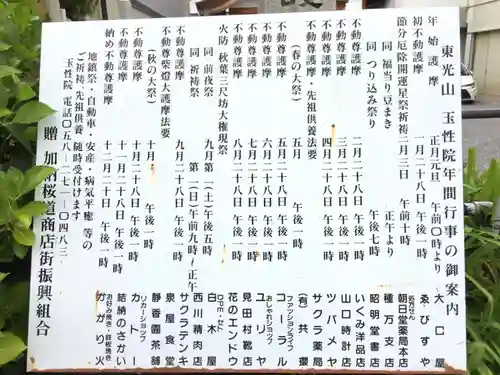 東光山 玉性院年間行事の御案内
年始護摩 正月元旦 午前0時より
初不動護摩 一月二十八日 午後一時
節分厄除開運星祭祈祷 二月三日 午前十時
同 福当り豆まき 正午より
同 つり込み祭り 午後七時
不動尊護摩 三月二十八日 午後一時
不動尊護摩 四月二十八日 午後一時
不動尊護摩・先祖供養 五月 午後一時
(春の大祭)
不動尊護摩 五月二十八日 午後一時
不動尊護摩 六月二十八日 午後一時
不動尊護摩 七月二十八日 午後一時
不動尊護摩 八月二十八日 午後一時
火防 秋葉三尺坊大権現祭
同 前夜祭 九月第一(土)午後五時
同 祈祷祭 第一(日)午前九時〜正午
不動尊護摩 九月二十八日 午後一時
不動尊柴燈大護摩法要
(秋の大祭) 十月 午後一時
不動尊護摩 十月二十八日 午後一時
不動尊護摩 十一月二十八日 午後一時
納め不動尊護摩 十二月二十日 午後一時
地鎮祭・自動車・安産・病気平癒 等の
ご祈祷、先祖供養、随時受付けます
玉性院 電話〇五八−二七一−〇四八三
贈 加納桜道商店街振興組合
大口屋
ゑびすや
処方せん
朝日堂薬局本店
種万支店
昭明堂書店
いくみ洋品店
山口時計店
ツバメヤ
サクラ薬局
(有)共環
ファッションライフ
コーラル
おしゃれショップ
ユリヤ
見田村靴店
花のエンドウ
白木屋
西川精肉店
サクラデンキ
泉屋食堂
静香園茶舗
リカーショップ
カトー
結納のさかい
お好み焼き・鉄板焼き
かがり火